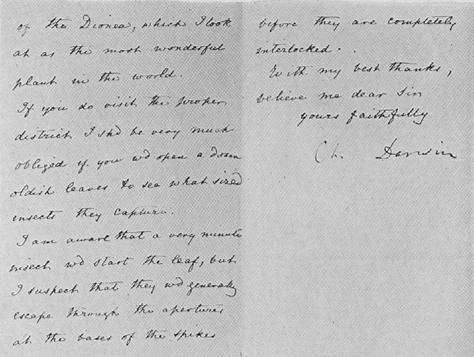 of the Dionea, which I look
at as the most wonderful
plant in the world.
If you do visit the proper
district I shd be very much
obliged if you wd open a dozen
oldish leaves to see what sized
insects they capture.
I am aware that a very minute
insect wd start the leaf, but
I suspect that they wd generally
escape through the apertures
at the bases of the spikes
before they are completely
interlocked. .
With my best thanks,
believe me dear Sir
yours faithfully
Ch. Darwin